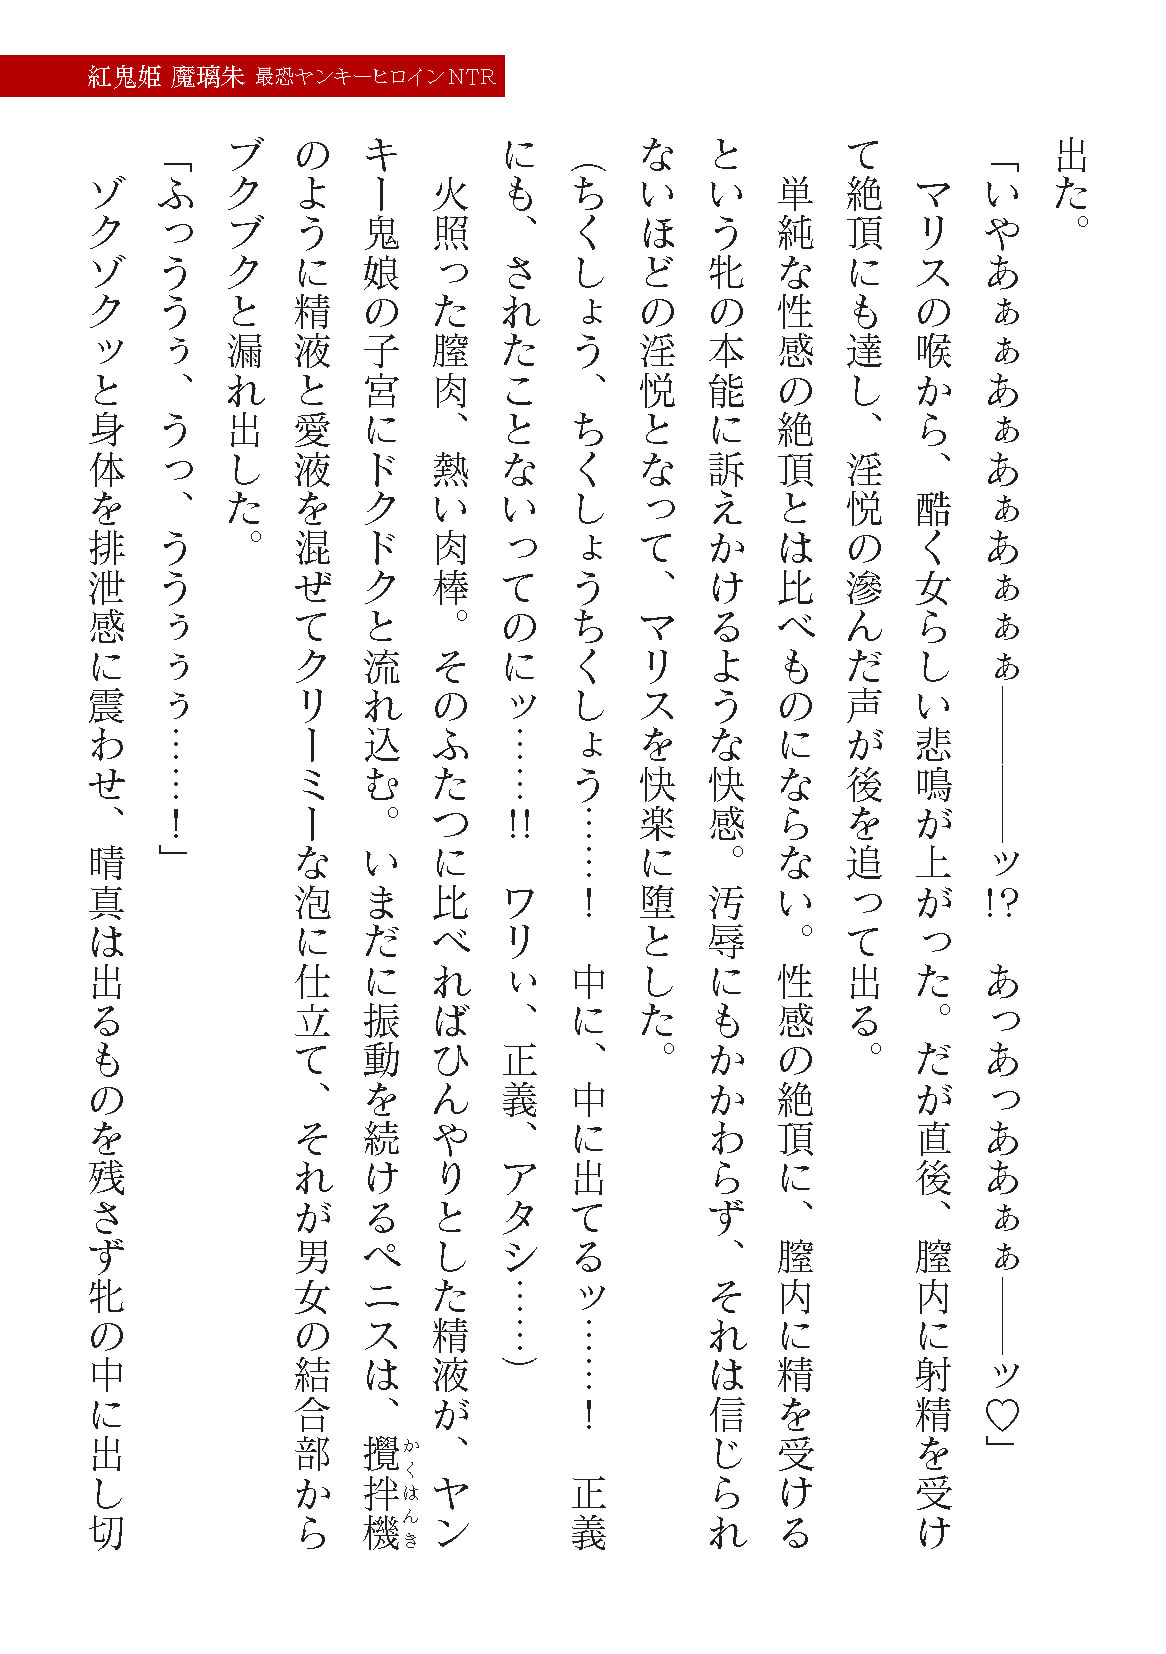 紅鬼姫 魔璃朱 最恐ヤンキーヒロインNTR
出た。
「いやあぁぁあぁあぁあぁぁぁ――――ッ!? あっあっああぁぁ――ッ♡」
マリスの喉から、酷く女らしい悲鳴が上がった。だが直後、膣内に射精を受け
て絶頂にも達し、淫悦の滲んだ声が後を追って出る。
単純な性感の絶頂とは比べものにならない。性感の絶頂に、膣内に精を受ける
という牝の本能に訴えかけるような快感。汚辱にもかかわらず、それは信じられ
ないほどの淫悦となって、マリスを快楽に堕とした。
（ちくしょう、ちくしょうちくしょう……！ 中に、中に出てるッ……！ 正義
にも、されたことないってのにッ……!! ワリぃ、正義、アタシ……）
火照った膣肉、熱い肉棒。そのふたつに比べればひんやりとした精液が、ヤン
キー鬼娘の子宮にドクドクと流れ込む。いまだに振動を続けるペニスは、攪拌機
かくはんき
のように精液と愛液を混ぜてクリーミーな泡に仕立て、それが男女の結合部から
ブクブクと漏れ出した。
「ふっううぅ、うっ、ううぅぅぅ……！」
ゾクゾクッと身体を排泄感に震わせ、晴真は出るものを残さず牝の中に出し切